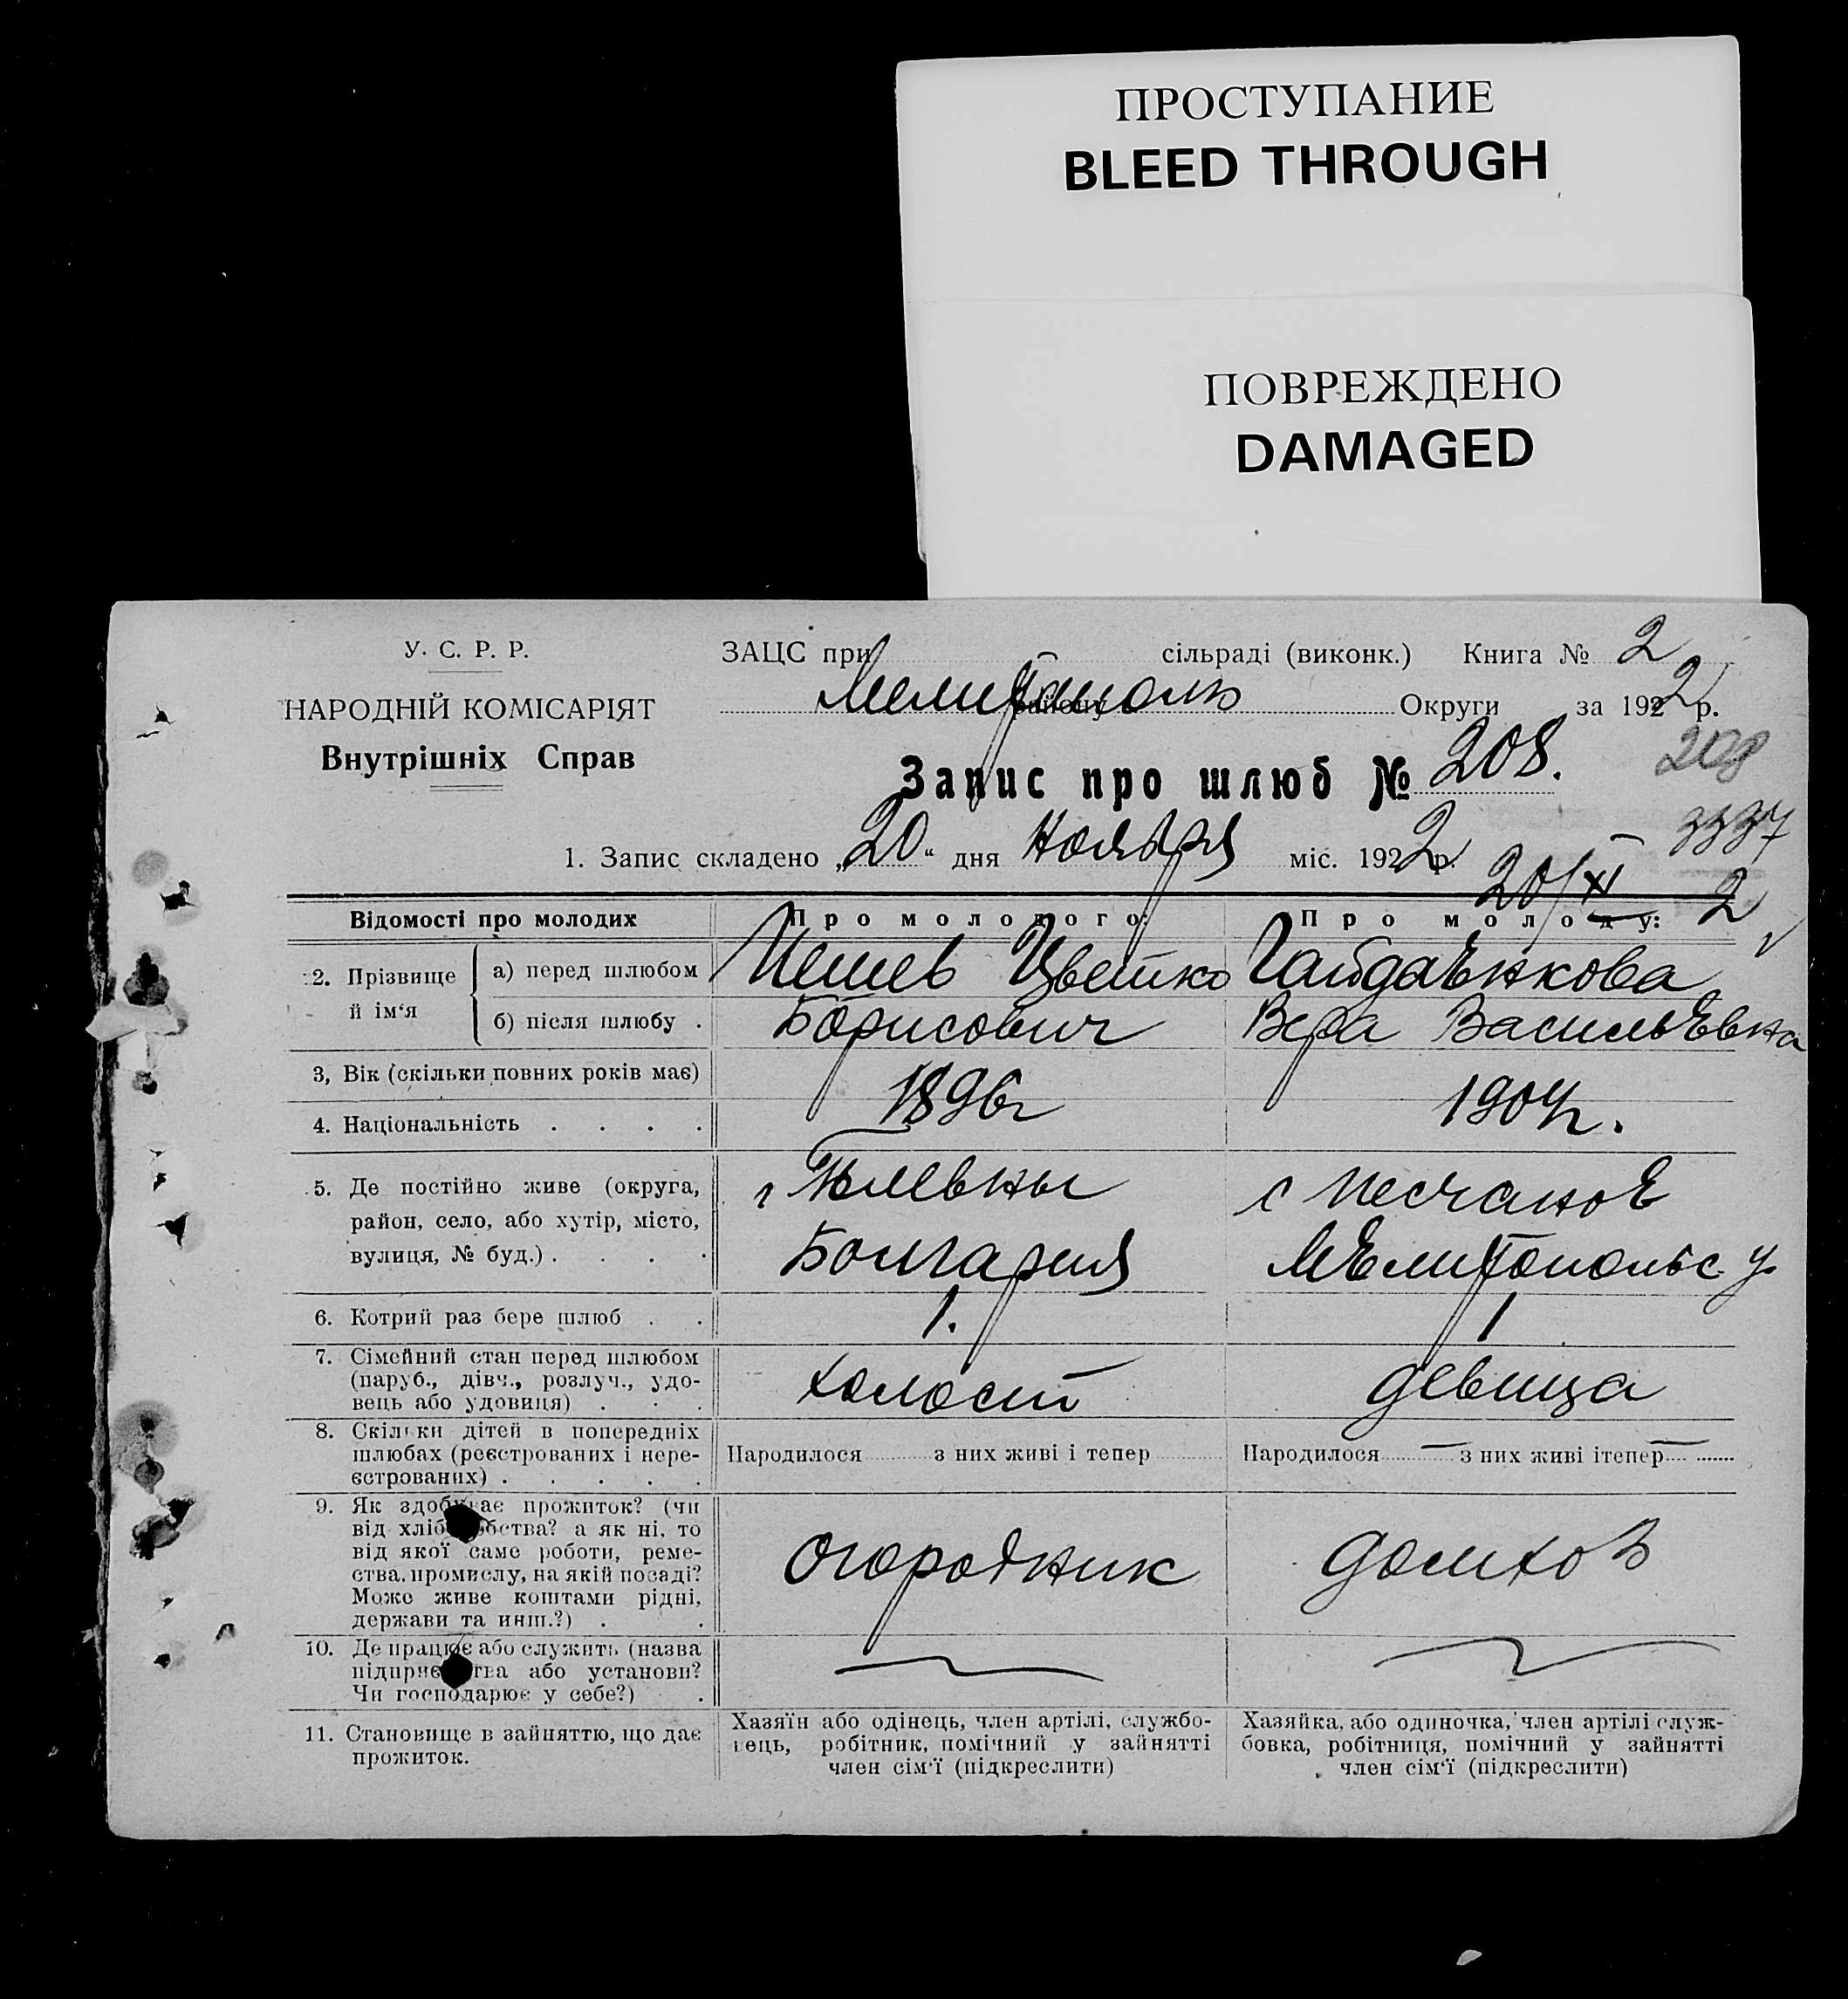 ПРОСТУПАНИЕ
BLEED THROUGH
ПОВРЕЖДЕНО
DAMAGED
У. С. Р. Р.
НАРОДНІЙ КОМІСАРІЯТ
Внутрішніх Справ
ЗАЦС при сільраді (виконк.) Книга № 2
Мелитополь району Округи за 1922 р.
Запис про шлюб № 208.
208
3337
1. Запис складено „20“ дня Ноября міс. 1922 р.
20/XI 2
Відомості про молодих Про молодого: Про молоду:
2. Прізвище й ім'я
а) перед шлюбом Цветко Гайдаенкова
б) після шлюбу . Борисович Вера Васильевна
3, Вік (скільки повних років має)
1896г 1904г.
4. Національність . . . .
5. Де постійно живе (округа, г Плевны с Песчаное
район, село, або хутір, місто,
вулиця, № буд.) . . . . Болгария Мелитопольс у
6. Котрий раз бере шлюб . . 1. 1
7. Сімейний стан перед шлюбом
(паруб., дівч., розлуч., удо- холост девица
вець або удовиця) . . .
8. Скільки дітей в попередніх
шлюбах (реєстрованих і нере- Народилося з них живі і тепер Народилося — з них живі ітепер —
єстрованих) . . . . .
9. Як здобуває прожиток? (чи
від хліборобства? а як ні, то
від якої саме роботи, реме- огородник домхоз
ства, промислу, на якій посаді?
Може живе коштами рідні,
держави та инш.?) . .
10. Де працює або служить (назва
підприємства або установи? — —
Чи господарює у себе?) .
11. Становище в зайняттю, що дає
прожиток.
Хазяїн або одінець, член артілі, службо-
вець, робітник, помічний у зайнятті
член сім'ї (підкреслити)
Хазяйка, або одиночка, член артілі служ-
бовка, робітниця, помічний у зайнятті
член сім'ї (підкреслити)